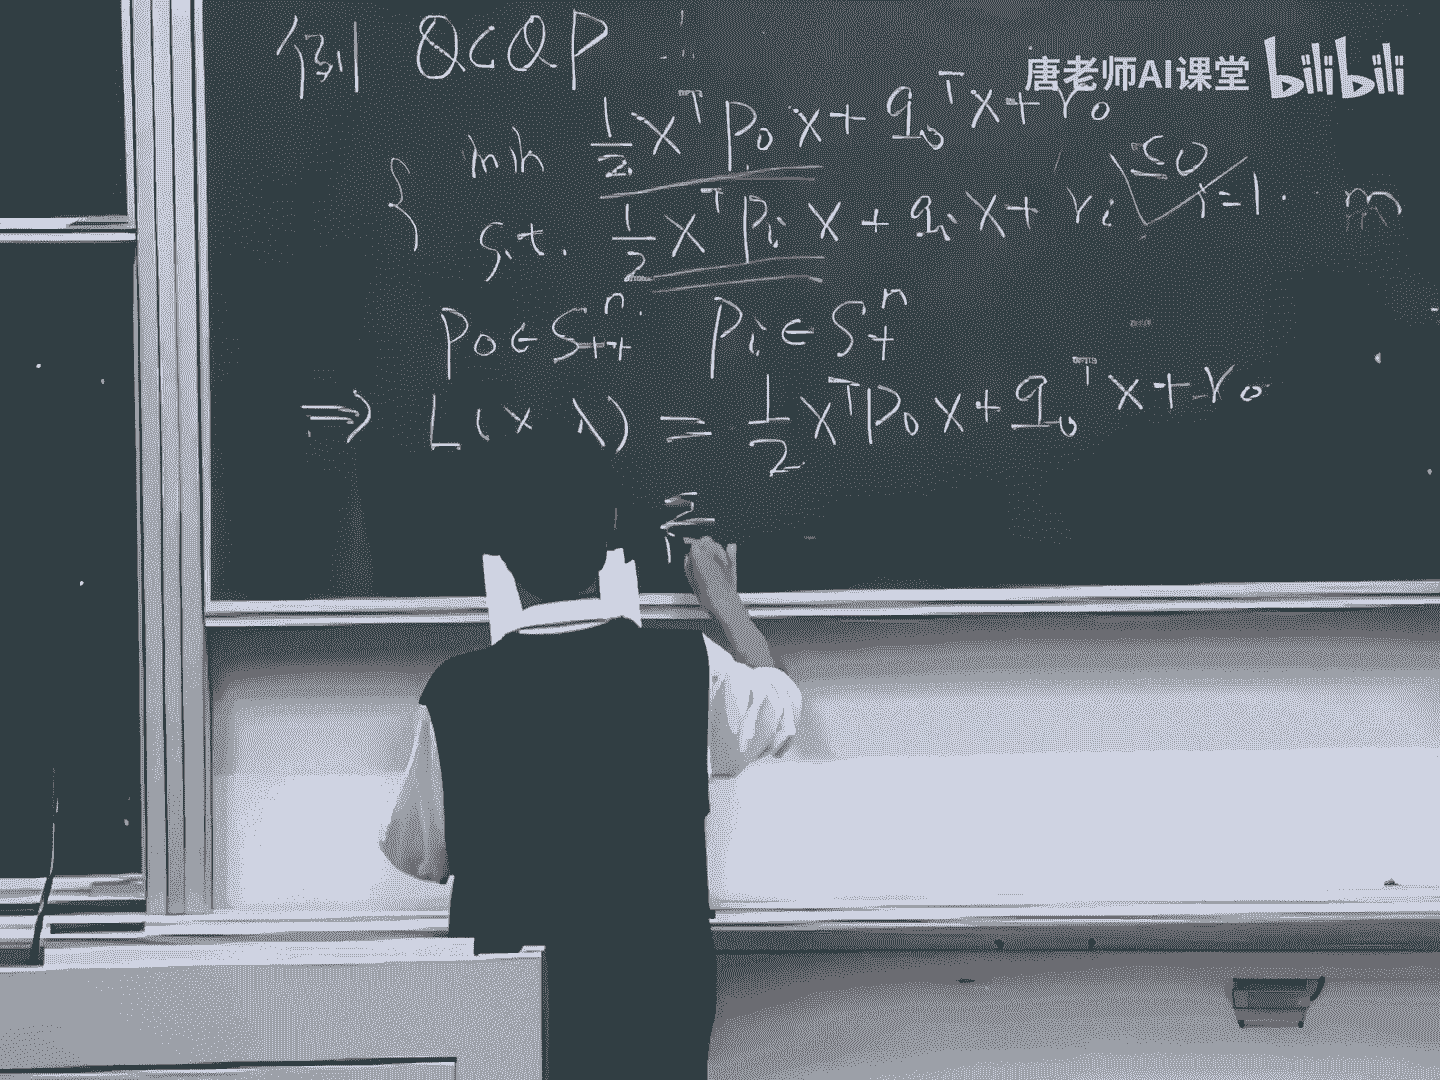 例 QCQP
唐老师AI课堂 bilibili
min 1/2 x^T P_0 x + q_0^T x + r_0
s.t. 1/2 x^T P_i x + q_i x + r_i ≤0 i=1. m
P_0 ∈ S_{++}^n P_i ∈ S_+^n
⇒ L(x λ) = 1/2 x^T P_0 x + q_0^T x + r_0
Σ i